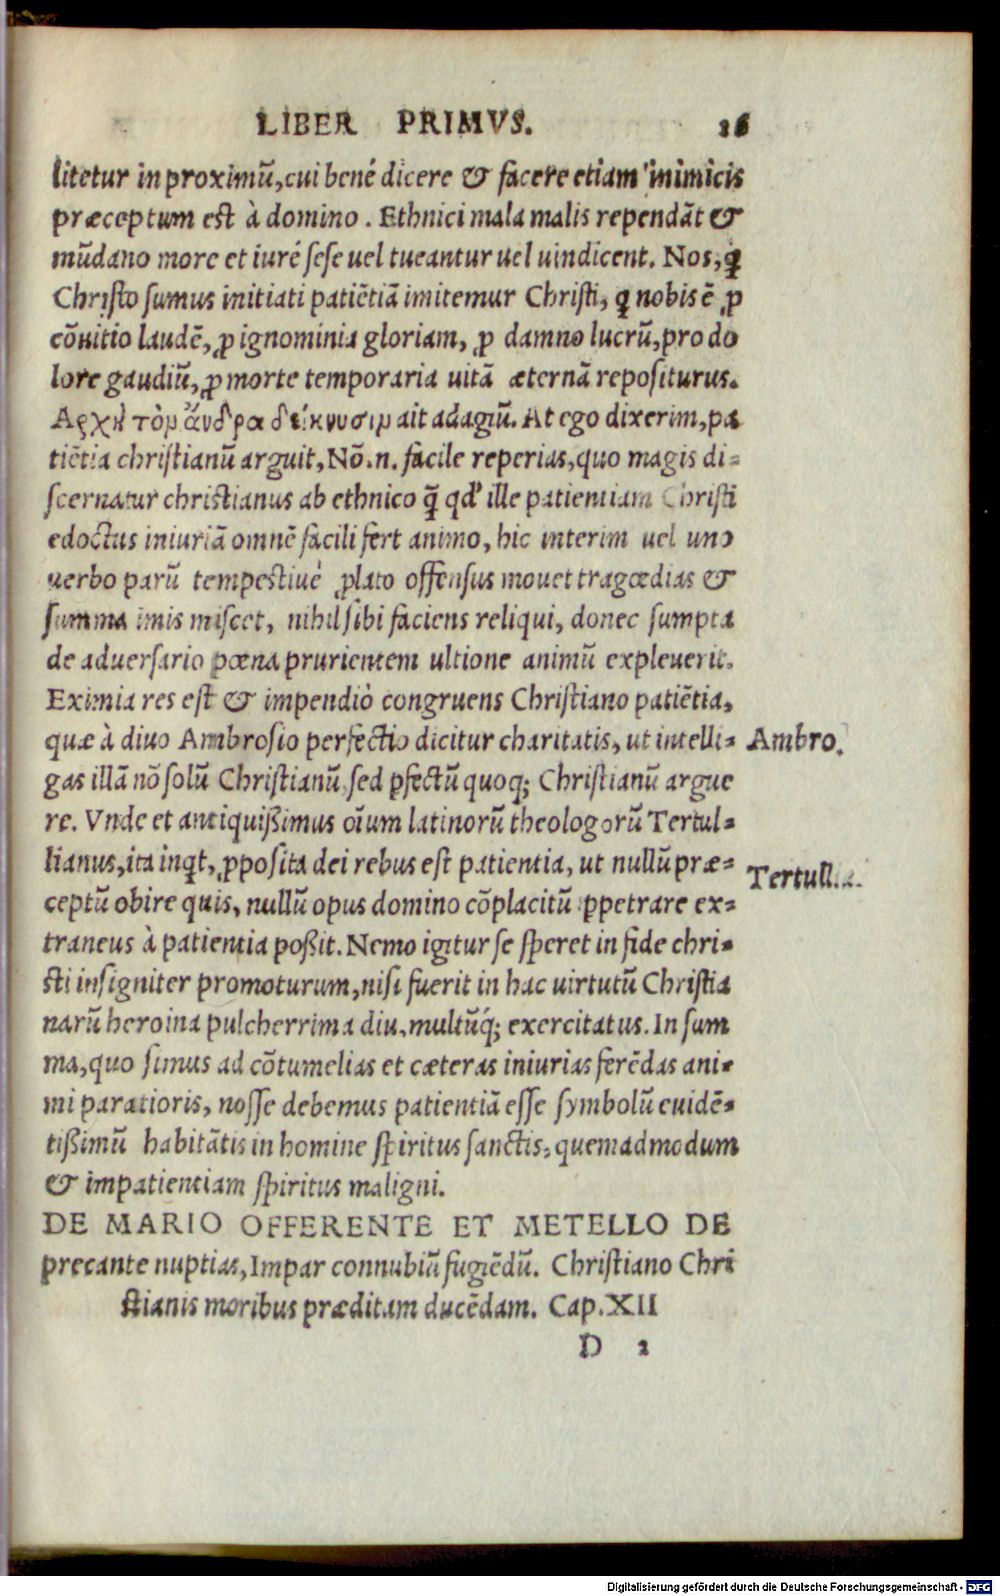 LIBER PRIMVS. 26
litetur in proximũ, cui bené dicere & facere etiam inimicis
præceptum est à domino. Ethnici mala malis rependãt &
mũdano more et iuré sese uel tueantur uel uindicent. Nos, q̃
Christo sumus initiati patiẽtiã imitemur Christi, q nobis ẽ ꝓ
cõuitio laudẽ, ꝓ ignominia gloriam, ꝓ damno lucrũ, pro do
lore gaudiũ, ꝓ morte temporaria uitã æternã repositurus.
Αρχὴ τὸμ ἄνδρα δείκνυσιμ ait adagiũ. At ego dixerim, pa
tiẽtia christianũ arguit, Nõ.n. facile reperias, quo magis di=
scernatur christianus ab ethnico q̃ qd' ille patientiam Christi
edoctus iniuriã omnẽ facili fert animo, hic interim uel uno
uerbo parũ tempestiué ꝓlato offensus mouet tragœdias &
summa imis miscet, nihil sibi faciens reliqui, donec sumpta
de aduersario pœna prurientem ultione animũ expleuerit.
Eximia res est & impendiò congruens Christiano patiẽtia,
quæ à diuo Ambrosio perfectio dicitur charitatis, ut intelli=
Ambro.
gas illã nõ solũ Christianũ, sed ꝑfectũ quoq; Christianũ argue
re. Vnde et antiquißimus oĩum latinorũ theologorũ Tertul=
lianus, ita inqt, ꝓposita dei rebus est patientia, ut nullũ præ=
Tertull.
ceptũ obire quis, nullũ opus domino cõplacitũ ꝑpetrare ex=
traneus à patientia poßit. Nemo igitur se speret in fide chri=
sti insigniter promoturum, nisi fuerit in hac uirtutũ Christia
narũ heroina pulcherrima diu, multũq́; exercitatus. In sum
ma, quo simus ad cõtumelias et cæteras iniurias ferẽdas ani=
mi paratioris, nosse debemus patientiã esse symbolũ euidẽ=
tißimũ habitãtis in homine spiritus sanctis, quemadmodum
& impatientiam spiritus maligni.
DE MARIO OFFERENTE ET METELLO DE
precante nuptias, Impar connubiũ fugiẽdũ. Christiano Chri
stianis moribus præditam ducẽdam. Cap. XII
D 2
Digitalisierung gefördert durch die Deutsche Forschungsgemeinschaft - DFG